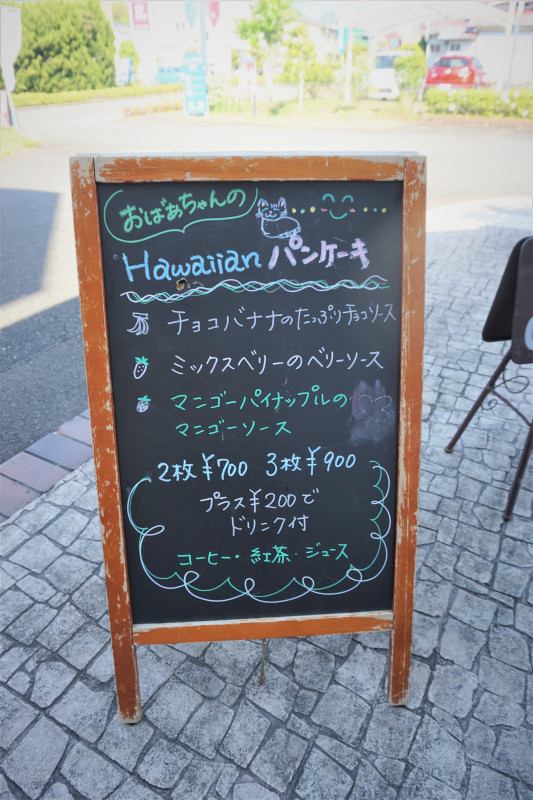 おばぁちゃんの
Hawaiian パンケーキ
チョコバナナのたっぷりチョコソース
ミックスベリーのベリーソース
マンゴーパイナップルの
マンゴーソース
2枚¥700 3枚¥900
プラス¥200で
ドリンク付
コーヒー・紅茶・ジュース